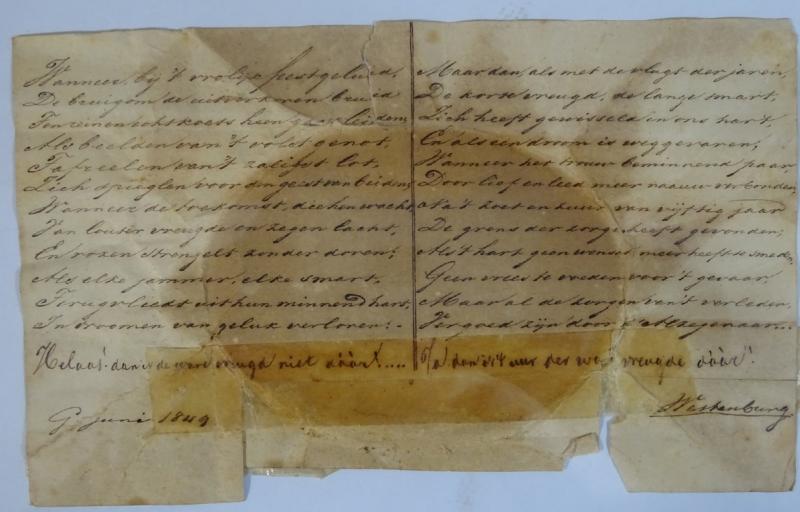 Wanneer, bij 't vrolijk feestgeluid,
De bruigom de uitverkoren bruid
Ten reinen echtkoets heen geleiden,
Als beelden van 't volst genot,
Tafreelen van 't zaligst lot,
Zich spieglen voor den geest van beiden;
Wanneer de toekomst, die hen wacht,
Van louter vreugde en zegen lacht,
En rozen strengelt zonder doren;
Als elke jammer, elke smart,
Terugvliedt uit hun minnend hart,
In droomen van geluk verloren: -
Helaas! dan is de ware vreugd niet dààr!....
9 Juni 1849
Maar dan, als met de vlugt der jaren,
De korte vreugd, de lange smart,
Zich heeft gewisseld in ons hart,
En als een droom is weggevaren;
Wanneer het trouw beminnend paar,
Door lief en leed meer naauw verbonden,
Na 't zoet en zuur van vijftig jaar
De grens der zorgen heeft gevonden;
Als 't hart geen wensch meer heeft te smeden,
Geen vrees te voeden voor 't gevaar,
Maar al de zorgen van 't verleden,
Vergoed zijn door d' Alzegenaar...
Ja! dan is 't uur der ware vreugde dààr!
Westenburg